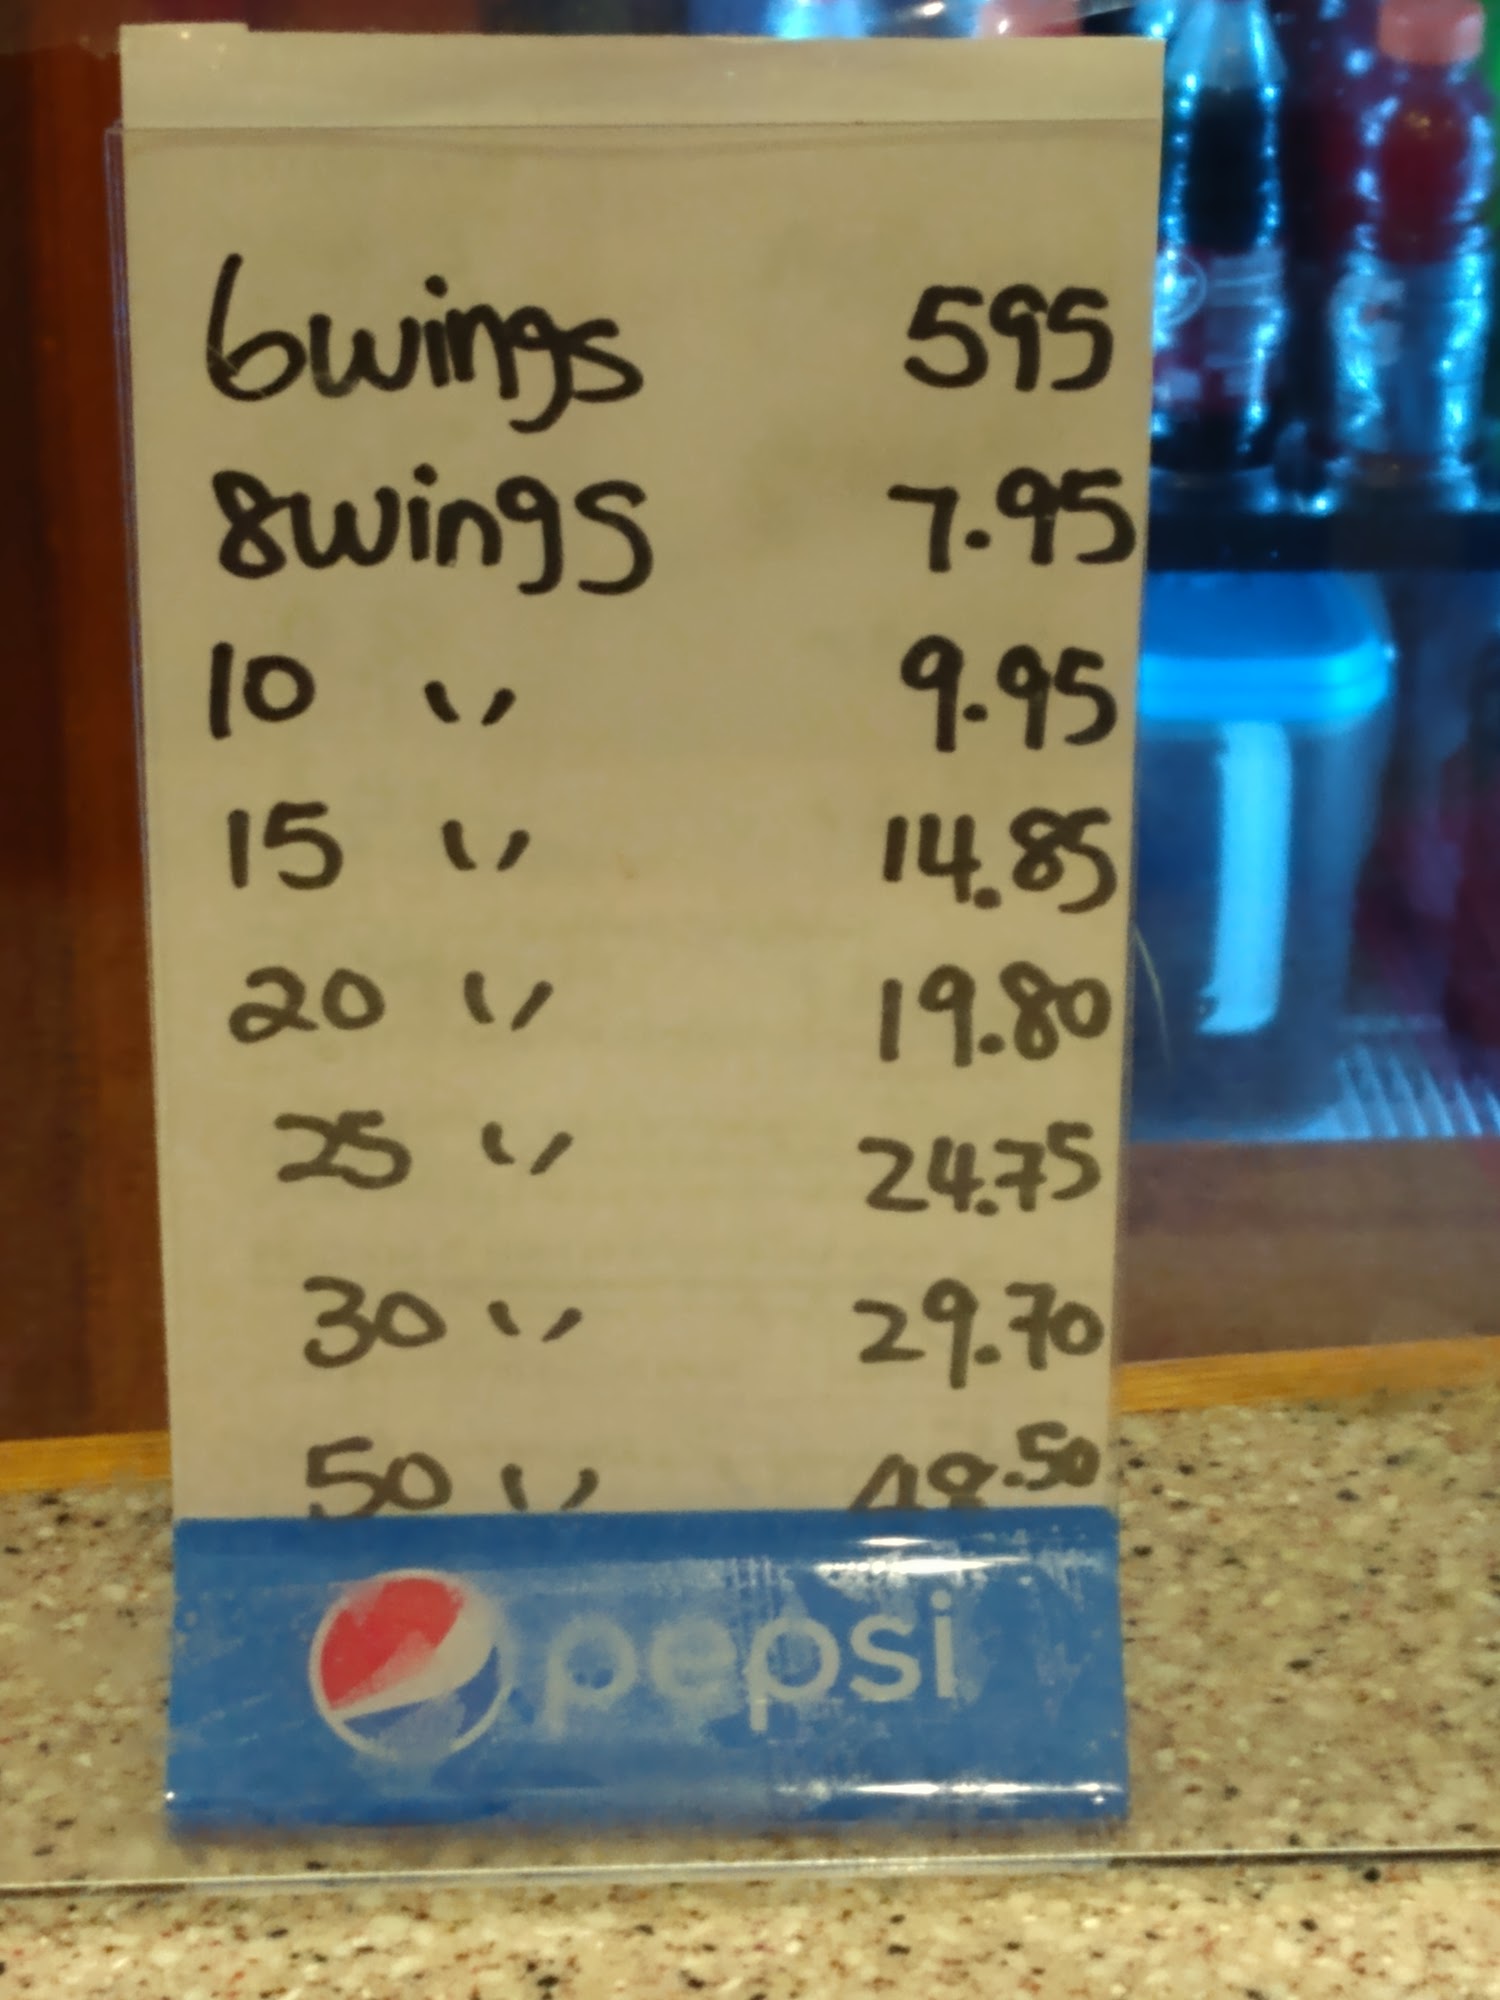 6wings 595
8wings 7.95
10 " 9.95
15 " 14.85
20 " 19.80
25 " 24.75
30 " 29.70
50 " 48.50
pepsi